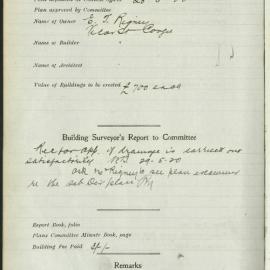 Plan approved by Committee
Name of Owner E. T. Regney
Name of Builder
Name of Architect
Value of Buildings to be erected £700 each
Building Surveyor's Report to Committee
Rec for app. if drainage is carried out
satisfactorily 29-5-20
Ask Mr Regney to see plan
re the sub Div plan
Report Book, folio
Plans Committee Minute Book, page
Building Fee Paid
Remarks